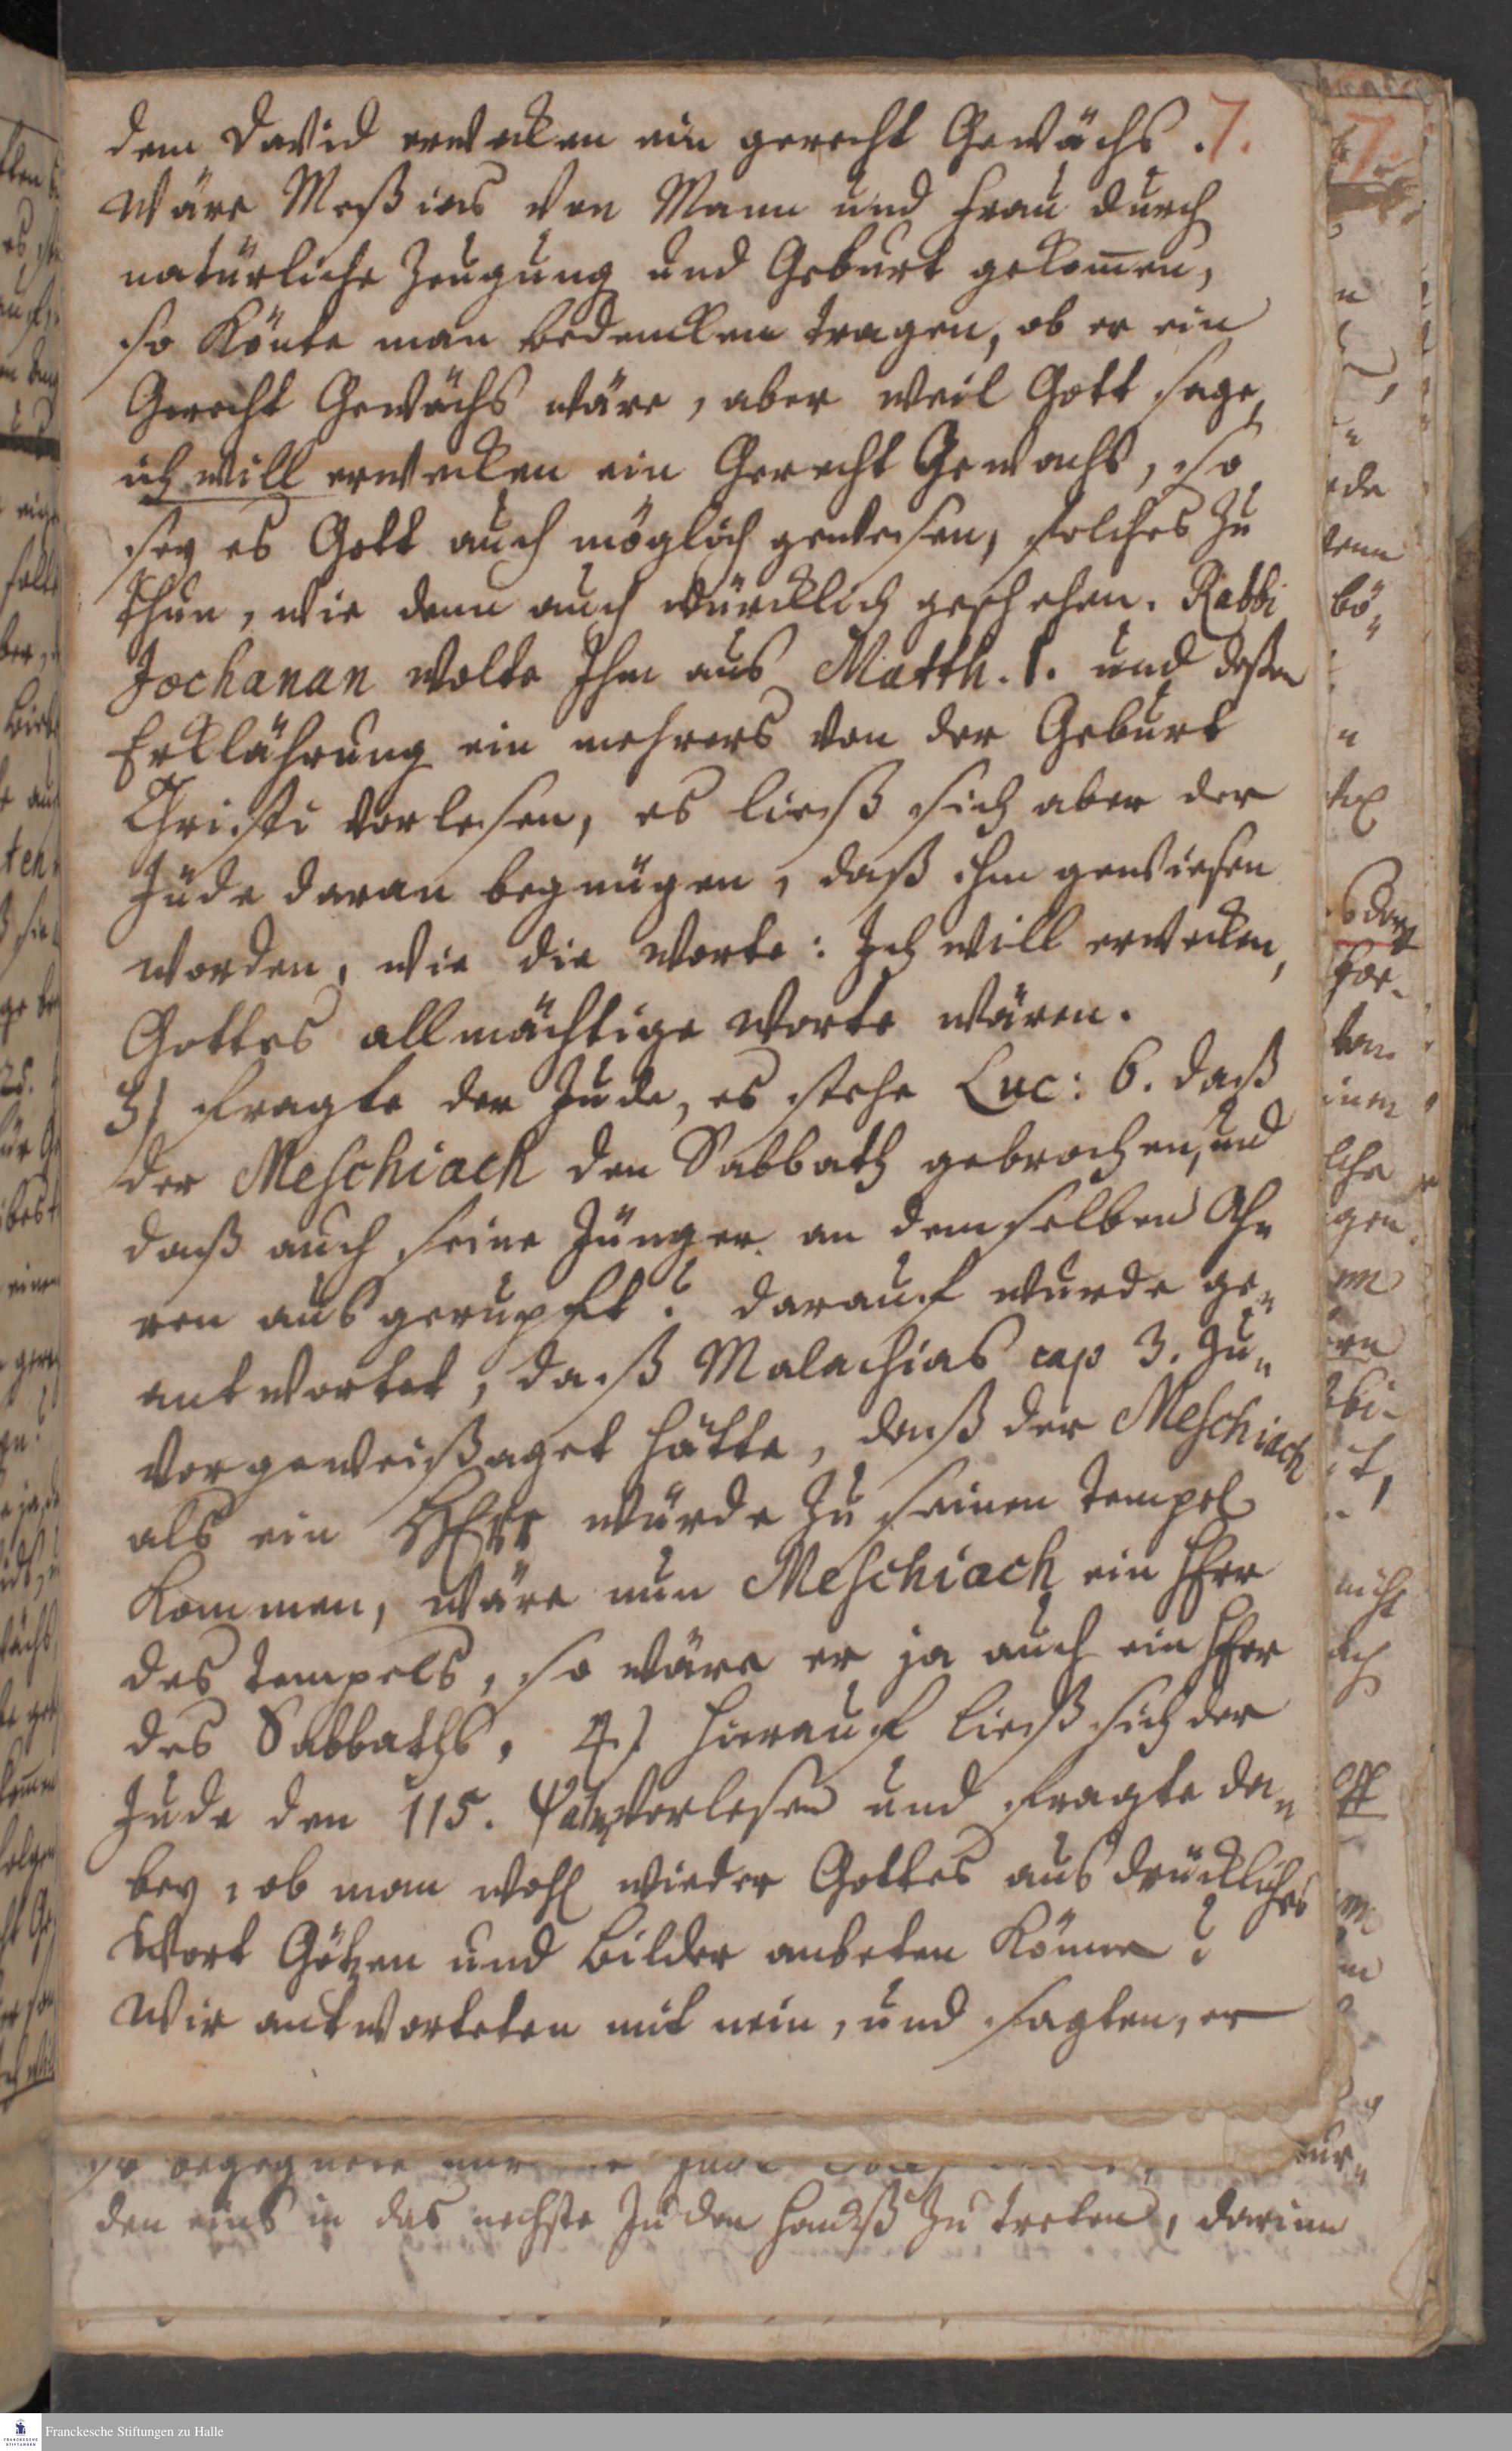 dem David erwecken ein gerecht Gewächs. 7.
Wäre Meßias von Mann und Frau durch
natürliche Zeugung und Geburt gekom̅en,
so könte man bedencken tragen, ob er ein
Gerecht Gewächs wäre, aber weil Gott sage,
ich will erwecken ein Gerecht Gewächs, so
sey es Gott auch möglich gewesen, solches zu
thun, wie denn auch würcklich geschehen. Rabbi
Jochanan wolte Ihm aus Matth. 1. und deßen
Erklährung ein mehrers von der Geburt
Christi vorlesen, es ließ sich aber der
Jude daran begnügen, daß ihm gewiesen
worden, wie die Worte: Ich will erwecken,
Gottes allmächtige Worte wären.
3) fragte der Jude, es stehe Luc: 6. daß
der Meschiach den Sabbath gebrochen, und
daß auch seine Jünger an demselben Äh„
ren ausgerupft? darauf wurde ge„
antwortet, daß Malachias cap 3. zu„
vor geweißaget hätte, daß der Meschiach
als ein HErr würde zu seinen Tempel
kommen, wäre nun Meschiach ein HErr
des Tempels, so wäre er ja auch ein HErr
des Sabbaths. 4.) Hierauf ließ sich der
Jude den 115. Psalm vorlesen und fragte da„
bey, ob man wohl wieder Gottes ausdrückliches
Wort Götzen und Bilder anbeten könne?
Wir antworteten mit nein, und sagten, er
so begegnete
den eins in das nechste Juden Hauß zu treten, darinn
Franckesche Stiftungen zu Halle